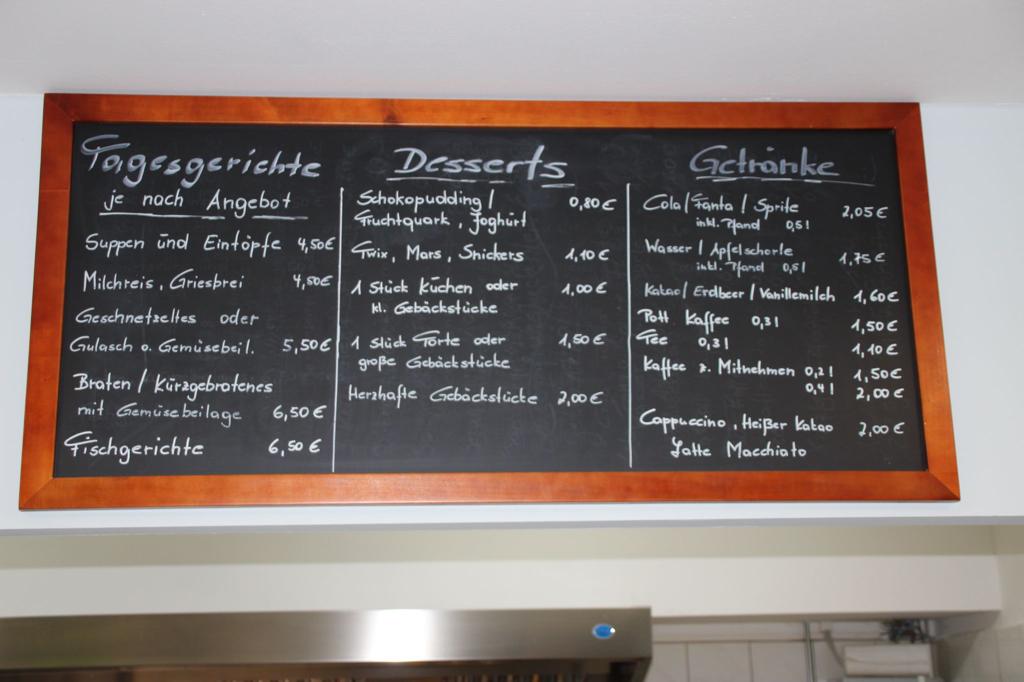 Tagesgerichte
je nach Angebot
Suppen und Eintöpfe 4,50€
Milchreis, Griesbrei 4,50€
Geschnetzeltes oder
Gulasch o. Gemüsebeil. 5,50€
Braten / Kurzgebratenes
mit Gemüsebeilage 6,50€
Fischgerichte 6,50€
Desserts
Schokopudding / 0,80€
Fruchtquark, Joghurt
Twix, Mars, Snickers 1,10€
1 Stück Kuchen oder 1,00€
kl. Gebäckstücke
1 Stück Torte oder 1,50€
große Gebäckstücke
Herzhafte Gebäckstücke 2,00€
Getränke
Cola / Fanta / Sprite 2,05€
inkl. Pfand 0,5l
Wasser / Apfelschorle 1,75€
inkl. Pfand 0,5l
Kakao / Erdbeer / Vanillemilch 1,60€
Pott Kaffee 0,3l 1,50€
Tee 0,3l 1,10€
Kaffee z. Mitnehmen 0,2l 1,50€
0,4l 2,00€
Cappuccino, Heißer Kakao 2,00€
Latte Macchiato